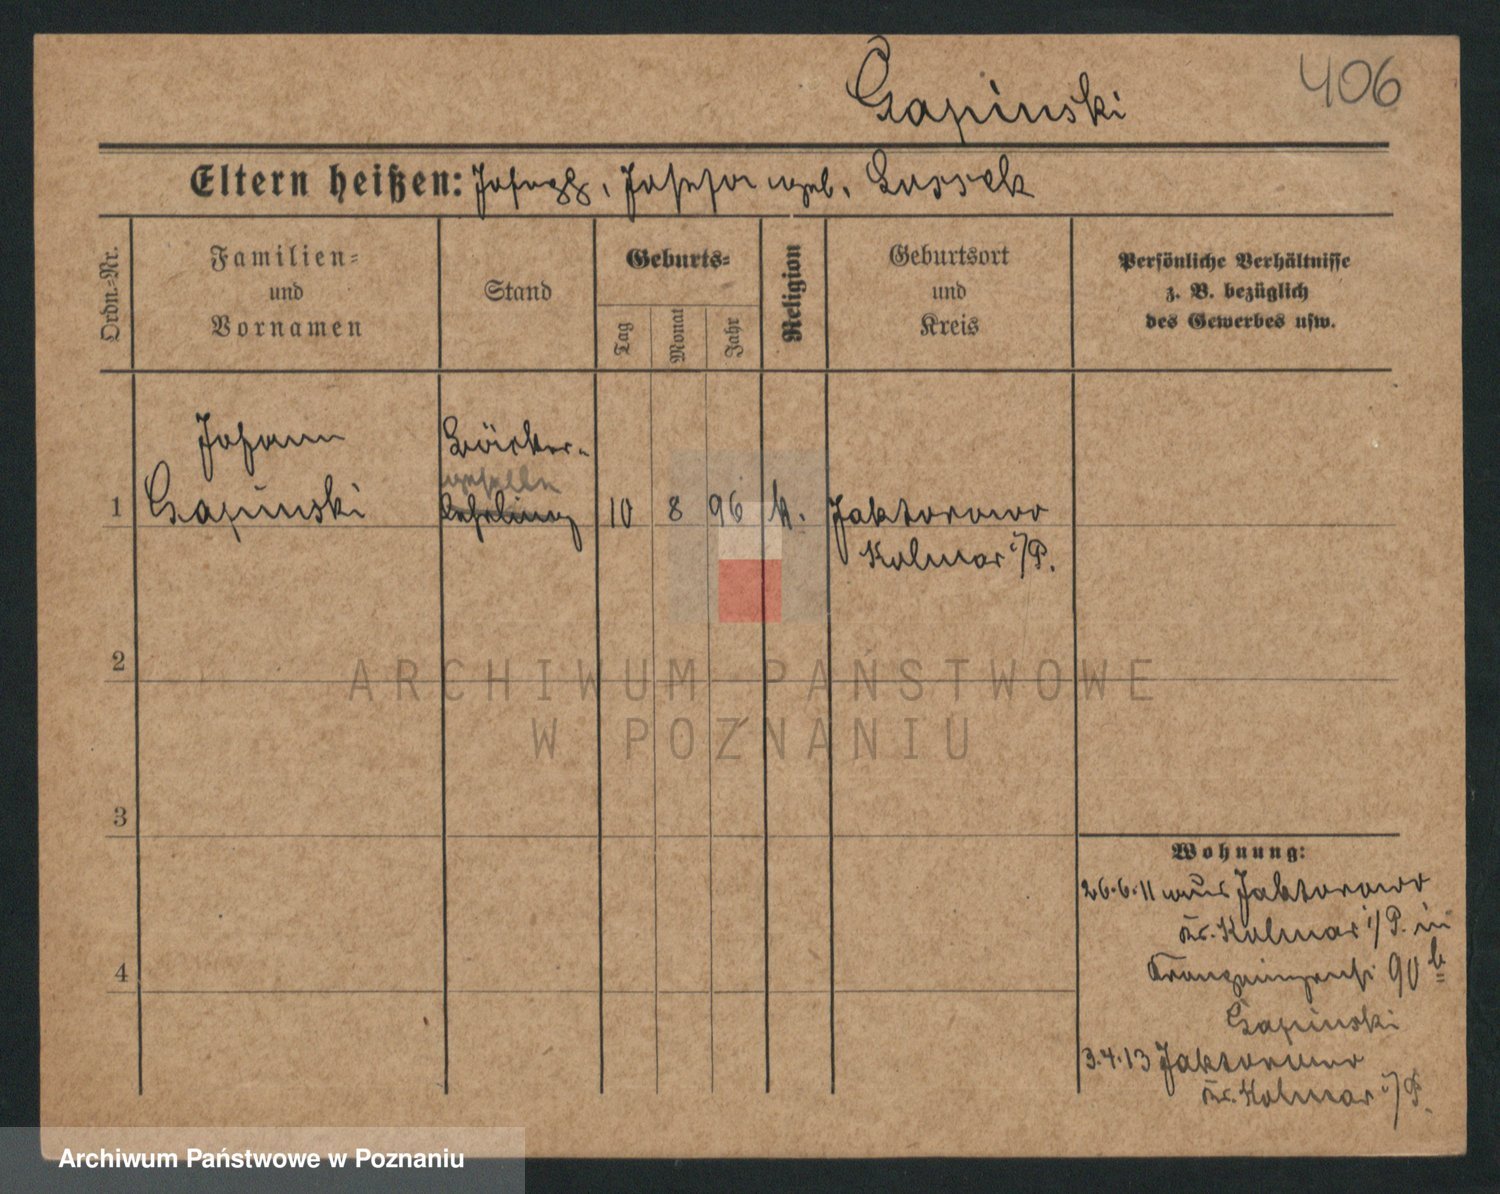 Czapinski
406
Eltern heißen: Joseph, Josefa geb.
Ordn.-Nr.
Familien-
und
Vornamen
Stand
Geburts-
Tag
Monat
Jahr
Religion
Geburtsort
und
Kreis
Persönliche Verhältnisse
z. B. bezüglich
des Gewerbes usw.
Johann
Bäcker-
geselle
1 Czapinski lehrling 10 8 96 k. Jaktorowo
Kolmar i/P.
2
ARCHIWUM PAŃSTWOWE
W POZNANIU
3
Wohnung:
26.6.11 aus Jaktorowo
Kr. Kolmar i/P. in
90 b
4
Czapinski
3.4.13 Jaktorowo
Kr. Kolmar i/P.
Archiwum Państwowe w Poznaniu